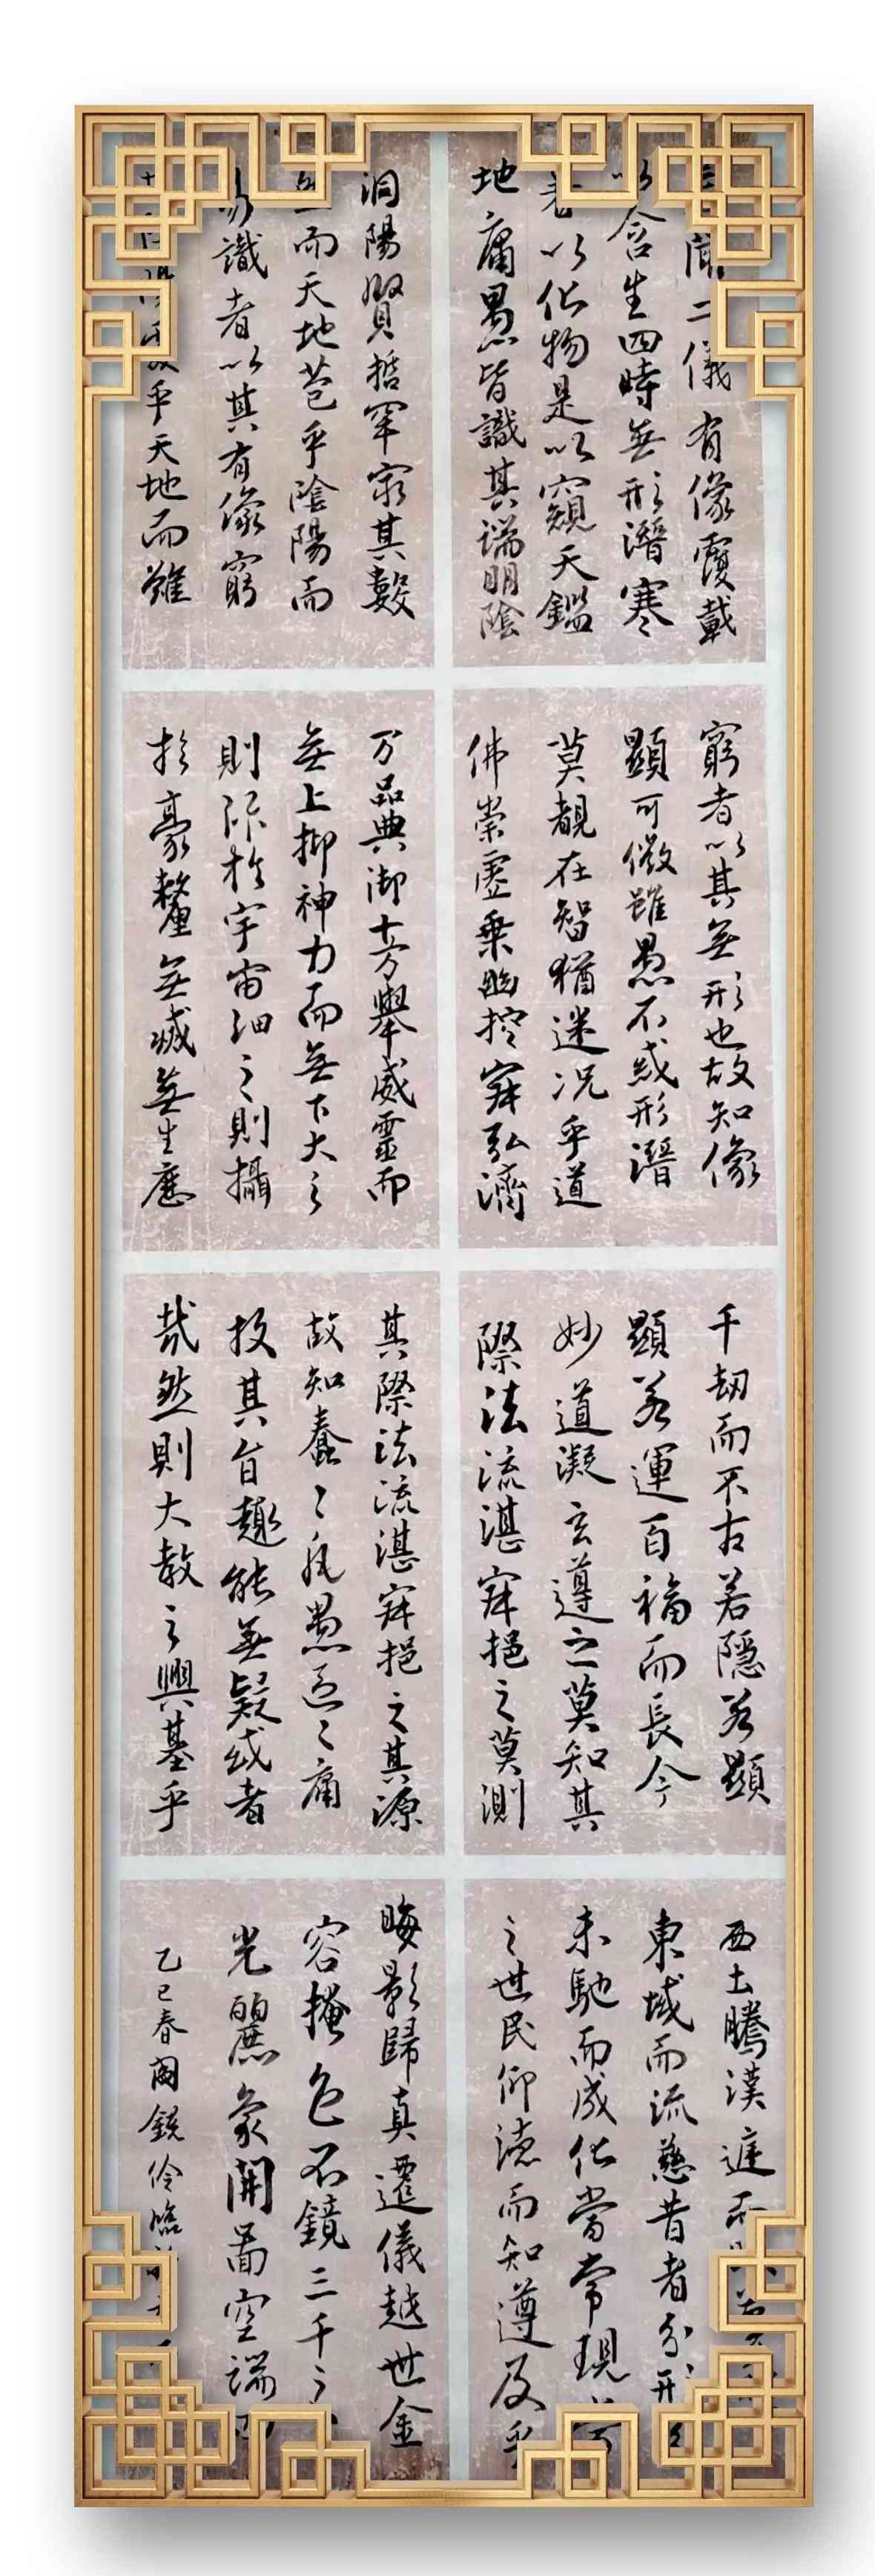 聞二儀有像覆載
以含生四時無形潛寒
以化物是以窺天鑑
地庸愚皆識其端明陰
洞陽賢哲罕窮其數
而天地苞乎陰陽而
易識者以其有像窮
乎天地而難
窮者以其無形也故知像
顯可徵雖愚不惑形潛
莫覩在智猶迷况乎道
佛崇虛乗幽控寂弘濟
万品典御十方舉威靈而
無上抑神力而無下大之
則弥於宇宙細之則攝
於豪釐無滅無生歷
千劫而不古若隱若顯
顯若運百福而長今
妙道凝玄遵之莫知其
際法流湛寂挹之莫測
其際法流湛寂挹之其源
故知蠢〻凡愚區〻庸
投其旨趣能無疑或者
哉然則大教之興基乎
西土騰漢庭而
東域而流慈昔者分形
未馳而成化當常現
之世民仰德而知遵及乎
晦影歸真遷儀越世金
容掩色不鏡三千之
光麗象開圖空端四
乙巳春國銳伶臨